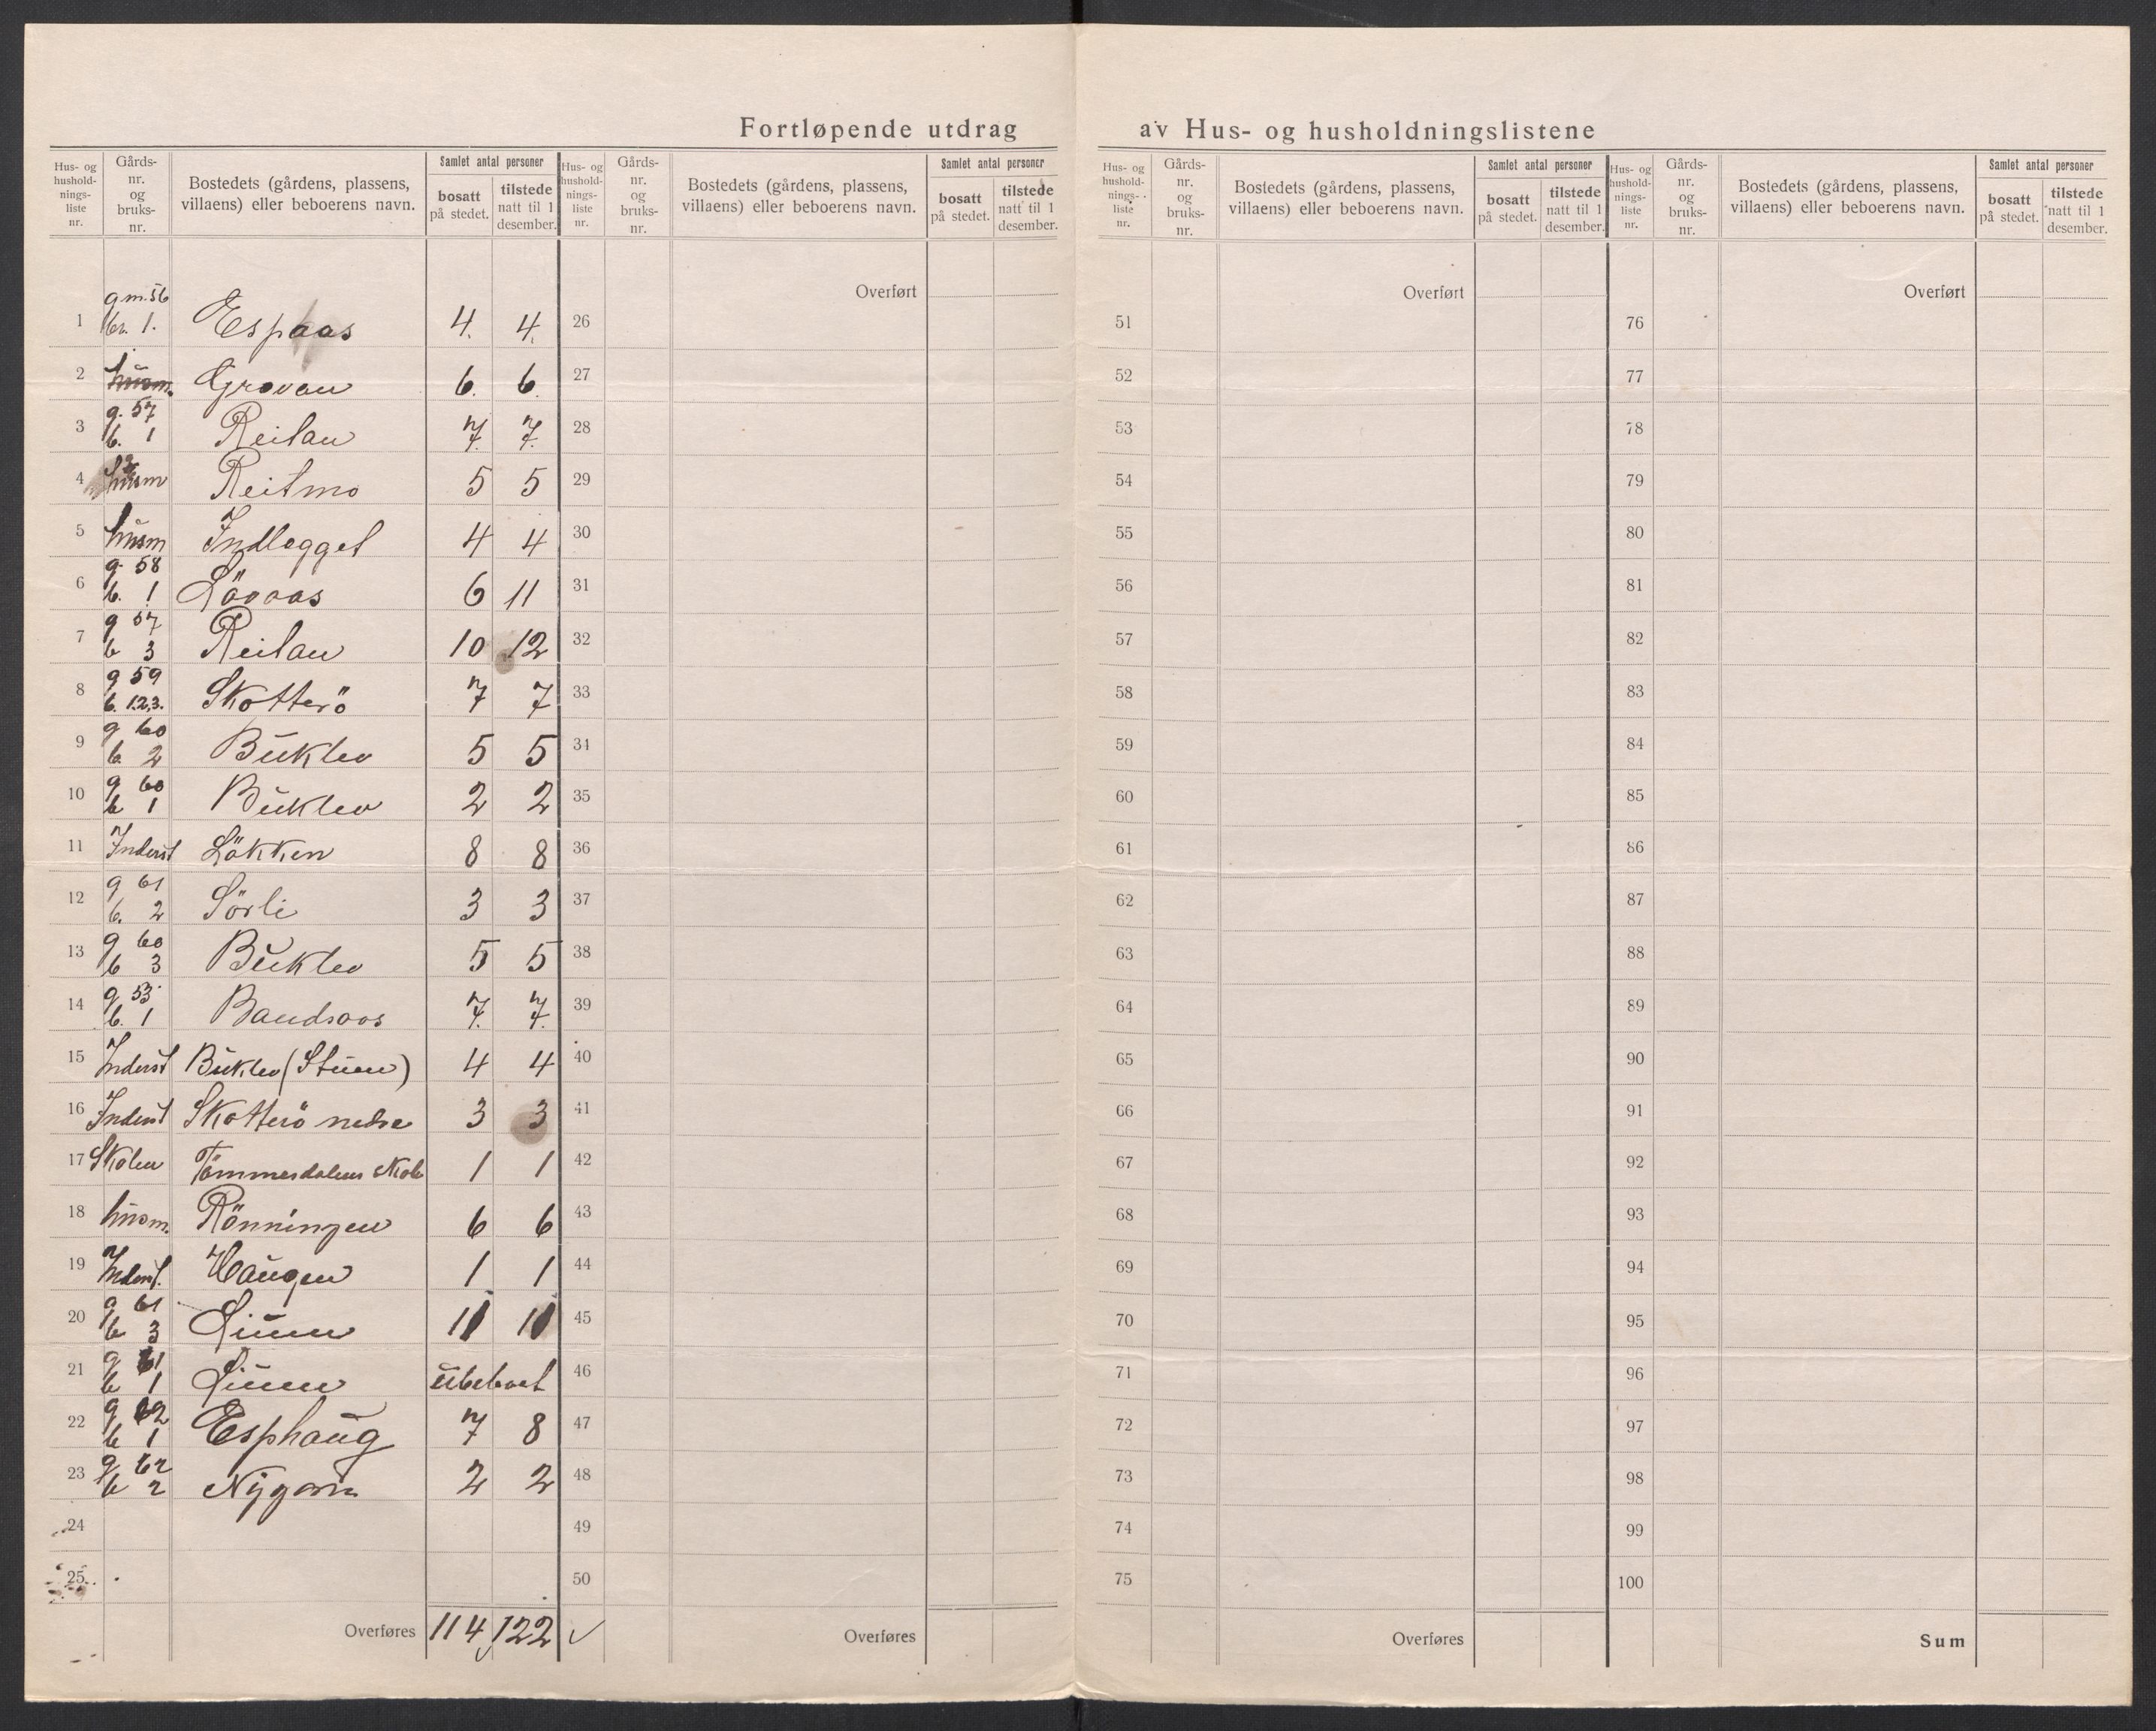 Fortløpende utdrag av Hus- og husholdningslistene
Hus- og husholdnings-liste nr. Gårds-nr. og bruks-nr. Bostedets (gårdens, plassens, villaens) eller beboerens navn. Samlet antal personer bosatt på stedet. tilstede natt til 1 desember.
Hus- og husholdnings-liste nr. Gårds-nr. og bruks-nr. Bostedets (gårdens, plassens, villaens) eller beboerens navn. Samlet antal personer bosatt på stedet. tilstede natt til 1 desember.
Hus- og husholdnings-liste nr. Gårds-nr. og bruks-nr. Bostedets (gårdens, plassens, villaens) eller beboerens navn. Samlet antal personer bosatt på stedet. tilstede natt til 1 desember.
Hus- og husholdnings-liste nr. Gårds-nr. og bruks-nr. Bostedets (gårdens, plassens, villaens) eller beboerens navn. Samlet antal personer bosatt på stedet. tilstede natt til 1 desember.
Overført Overført Overført
1 g.nr. 56 br. 1. Espaas 4. 4. 26 51 76
2 husm. Grovan 6. 6. 27 52 77
3 g. 57 b. 1 Reitan 7. 7. 28 53 78
4 husm Reitmo 5 5 29 54 79
5 husm Indlegget 4 4 30 55 80
6 g. 58 b. 1 Lövaas 6 11 31 56 81
7 g 57 b 3 Reitan 10 12 32 57 82
8 g 59 b. 1.2.3. Skotterö 7 7 33 58 83
9 g 60 b. 2 Buklev 5 5 34 59 84
10 g 60 b 1 Buklev 2 2 35 60 85
11 Inderst Lökken 8 8 36 61 86
12 g 61 b. 2 Sörli 3 3 37 62 87
13 g 60 b 3 Buklev 5 5 38 63 88
14 g. 53 b. 1 Baudsaas 7. 7. 39 64 89
15 Inderst Buklev (Stuen) 4 4 40 65 90
16 Inderst Skotterö nedre 3 3 41 66 91
17 Skolen Tömmesdalens skole 1 1 42 67 92
18 husm. Rönningen 6 6 43 68 93
19 Inderst. Haugen 1 1 44 69 94
20 g 61 b 3 Liuen 11 11 45 70 95
21 g 61 b 1 Liuen ubeboet 46 71 96
22 g 62 b 1 Esphaug 7 8 47 72 97
23 g 62 b 2 Nygarn 2 2 48 73 98
24 49 74 99
25 50 75 100
Overføres 114 122 Overføres Overføres Sum